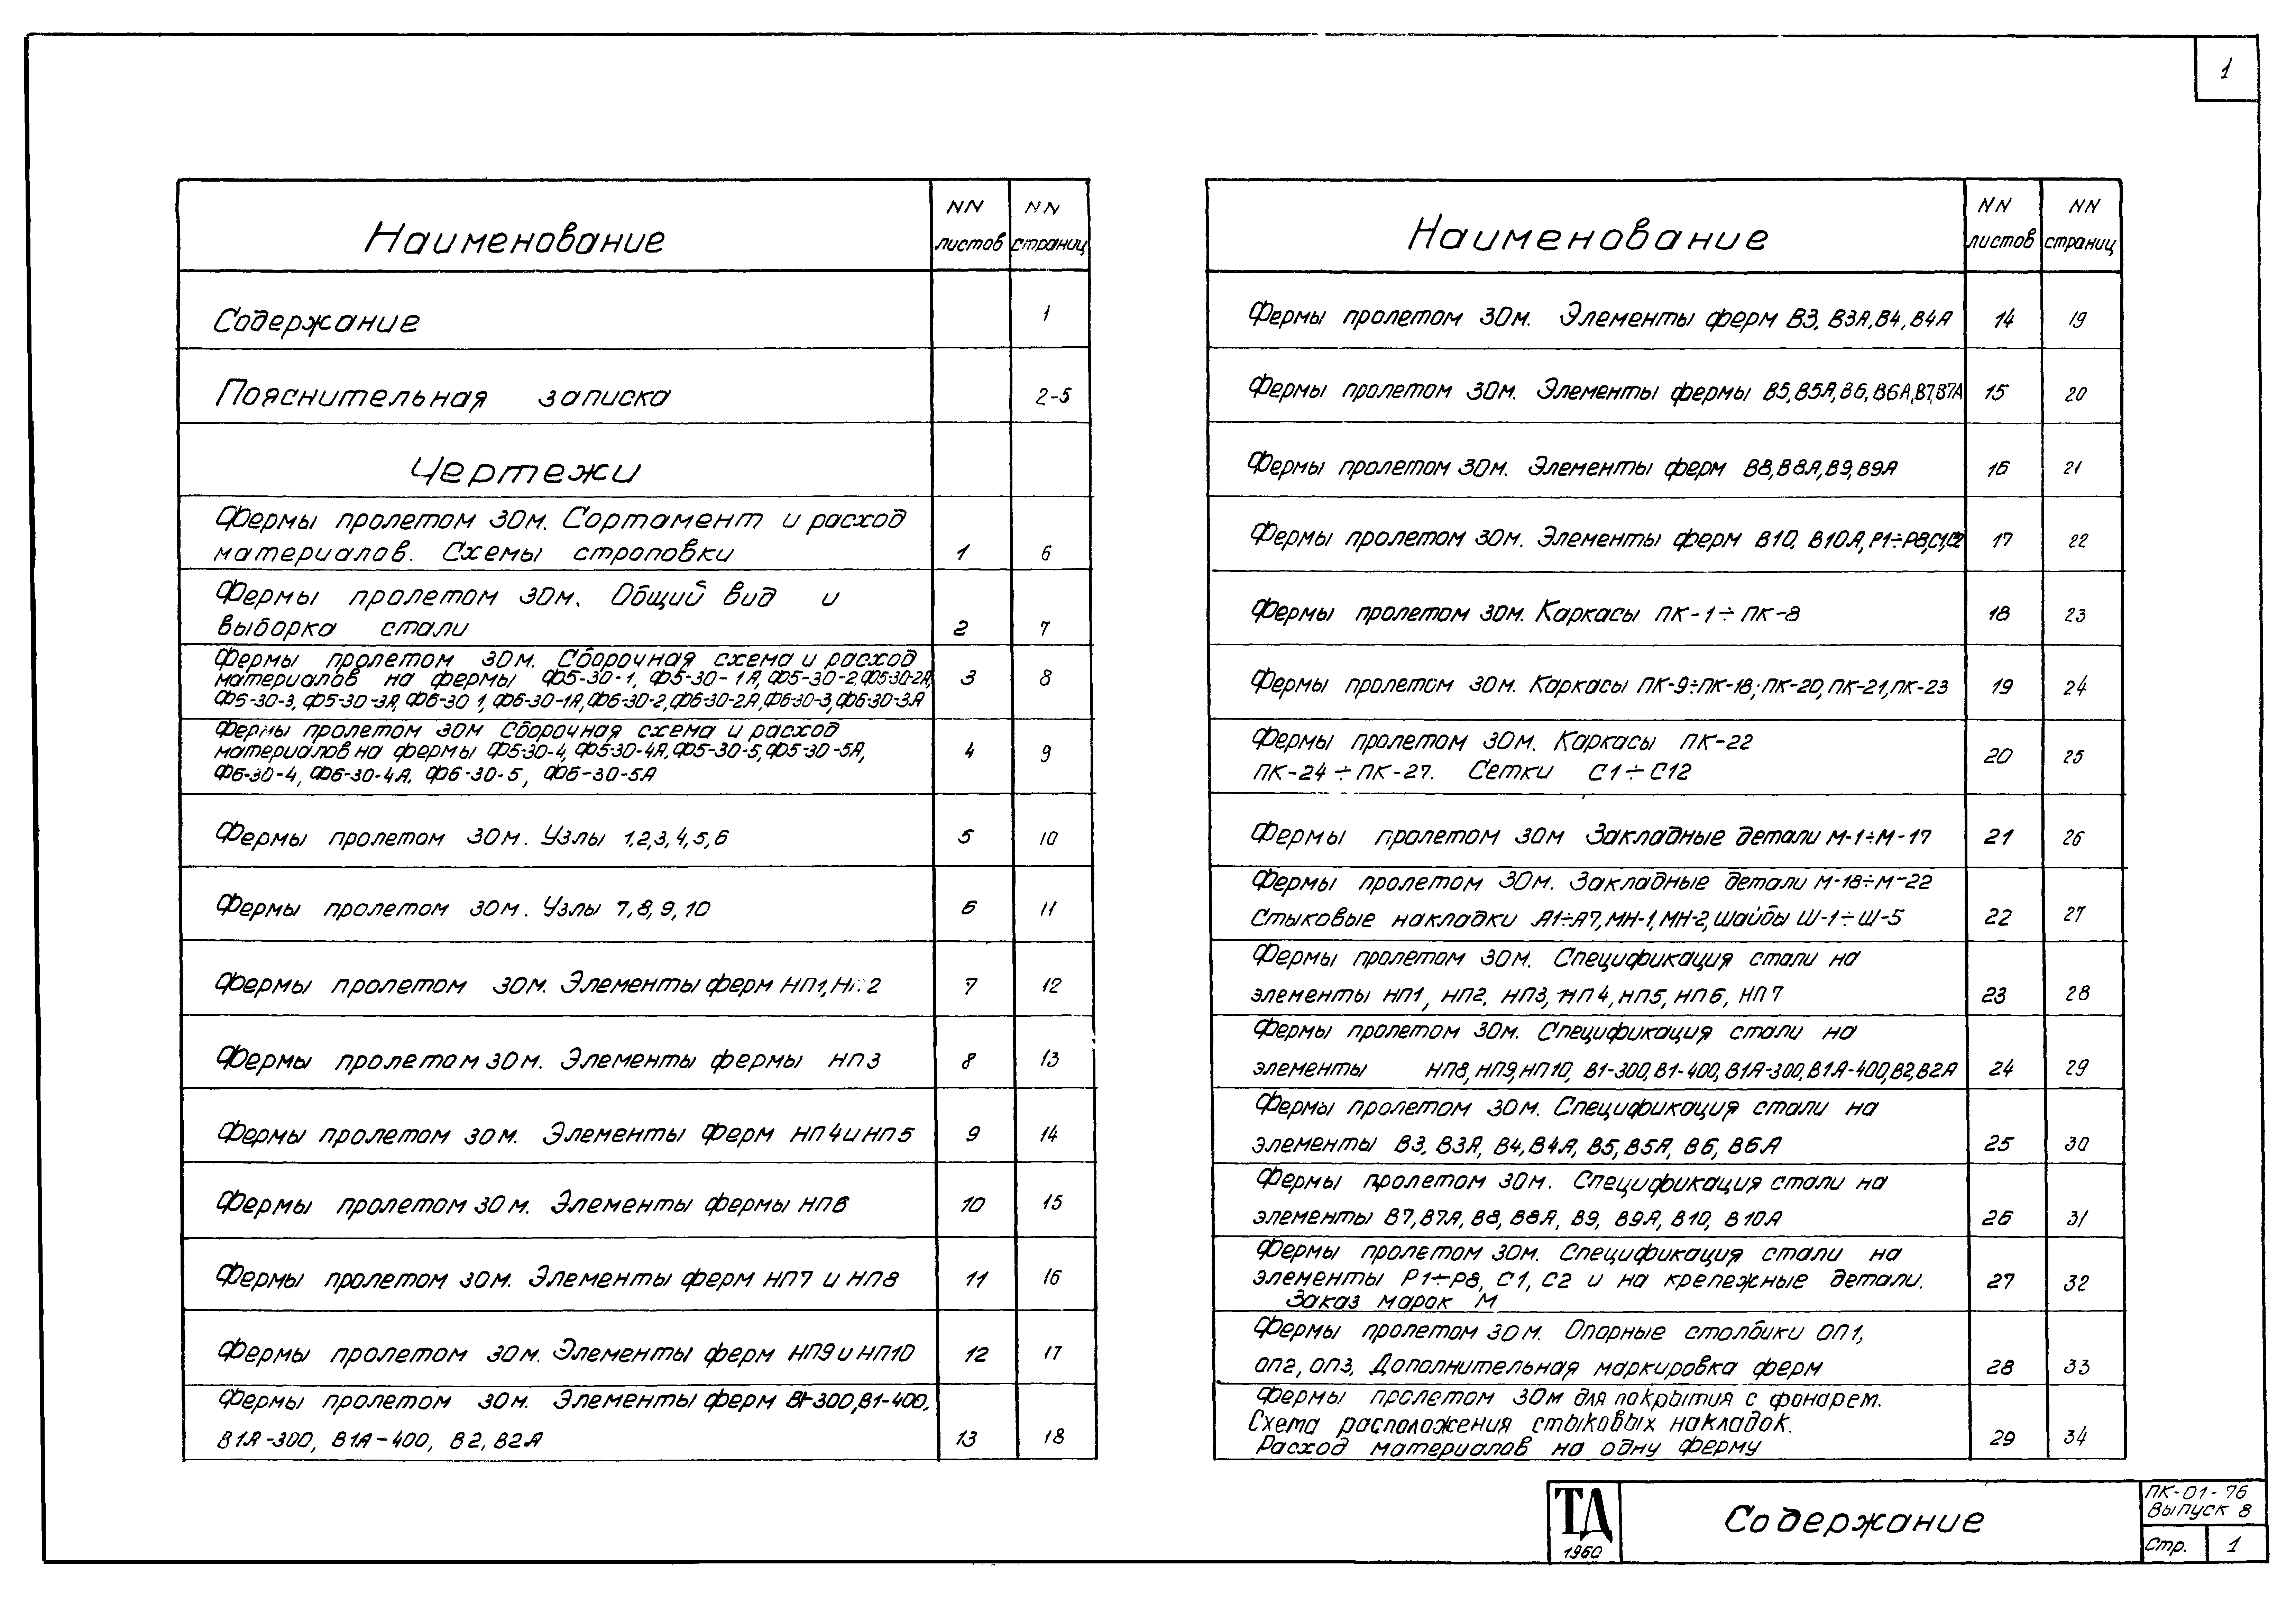 1
Наименование
NN листов
NN страниц
Содержание 1
Пояснительная записка 2-5
Чертежи
Фермы пролетом 30м. Сортамент и расход
материалов. Схемы строповки 1 6
Фермы пролетом 30м. Общий вид и
выборка стали 2 7
Фермы пролетом 30м. Сборочная схема и расход
материалов на фермы Ф5-30-1, Ф5-30-1А, Ф5-30-2, Ф5-30-2А, 3 8
Ф5-30-3, Ф5-30-3А, Ф6-30 1, Ф6-30-1А, Ф6-30-2, Ф6-30-2А, Ф6-30-3, Ф6-30-3А
Фермы пролетом 30м Сборочная схема и расход
материалов на фермы Ф5-30-4, Ф5-30-4А, Ф5-30-5, Ф5-30-5А, 4 9
Ф6-30-4, Ф6-30-4А. Ф6-30-5, Ф6-30-5А
Фермы пролетом 30м. Узлы 1,2,3,4,5,6 5 10
Фермы пролетом 30м. Узлы 7,8,9,10 6 11
Фермы пролетом 30м. Элементы ферм НП1, НП2 7 12
Фермы пролетом 30м. Элементы фермы НП3 8 13
Фермы пролетом 30м. Элементы ферм НП4 и НП5 9 14
Фермы пролетом 30м. Элементы фермы НП6 10 15
Фермы пролетом 30м. Элементы ферм НП7 и НП8 11 16
Фермы пролетом 30м. Элементы ферм НП9 и НП10 12 17
Фермы пролетом 30м. Элементы ферм В1-300, В1-400,
В1А-300, В1А-400, В2, В2А 13 18
Наименование
NN листов
NN страниц
Фермы пролетом 30м. Элементы ферм В3, В3А, В4, В4А 14 19
Фермы пролетом 30м. Элементы фермы В5, В5А, В6, В6А, В7, В7А 15 20
Фермы пролетом 30м. Элементы ферм В8, В8А, В9, В9А 16 21
Фермы пролетом 30м. Элементы ферм В10, В10А, Р1÷Р8, С1, С2 17 22
Фермы пролетом 30м. Каркасы ПК-1÷ПК-8 18 23
Фермы пролетом 30м. Каркасы ПК-9÷ПК-18; ПК-20, ПК-21, ПК-23 19 24
Фермы пролетом 30м. Каркасы ПК-22
ПК-24÷ПК-27. Сетки С1÷С12 20 25
Фермы пролетом 30м Закладные детали М-1÷М-17 21 26
Фермы пролетом 30м. Закладные детали М-18÷М-22
Стыковые накладки А1÷А7, МН-1, МН-2, шайбы Ш-1÷Ш-5 22 27
Фермы пролетом 30м. Спецификация стали на
элементы НП1, НП2, НП3, НП4, НП5, НП6, НП7 23 28
Фермы пролетом 30м. Спецификация стали на
элементы НП8, НП9, НП10, В1-300, В1-400, В1А-300, В1А-400, В2, В2А 24 29
Фермы пролетом 30м. Спецификация стали на
элементы В3, В3А, В4, В4А, В5, В5А, В6, В6А 25 30
Фермы пролетом 30м. Спецификация стали на
элементы В7, В7А, В8, В8А, В9, В9А, В10, В10А 26 31
Фермы пролетом 30м. Спецификация стали на
элементы Р1÷Р8, С1, С2 и на крепежные детали. 27 32
Заказ марок М
Фермы пролетом 30м. Опорные столбики ОП1,
ОП2, ОП3, Дополнительная маркировка ферм 28 33
Фермы пролетом 30м для покрытия с фонарем.
Схема расположения стыковых накладок.
Расход материалов на одну ферму 29 34
ТД
1960
Содержание
ПК-01-76
Выпуск 8
Стр. 1